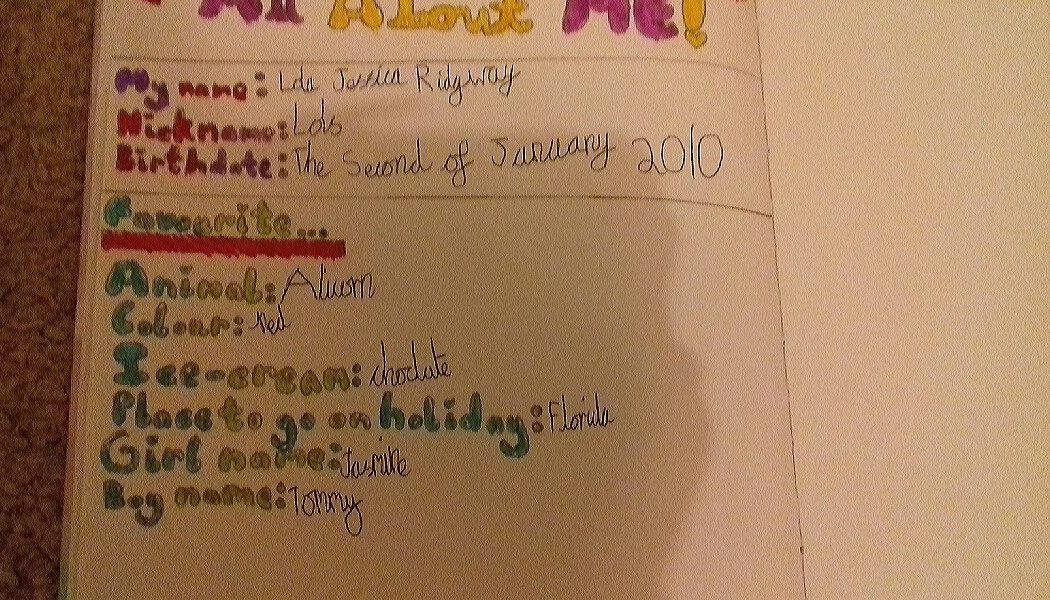 All About Me!
My name: Lola Jessica Ridgway
Nickname: Lols
Birthdate: The Second of January 2010
Favourite...
Animal: Alicorn
Colour: red
Ice-cream: choclate
Place to go on holiday: Florida
Girl name: Jasmine
Boy name: Tommy